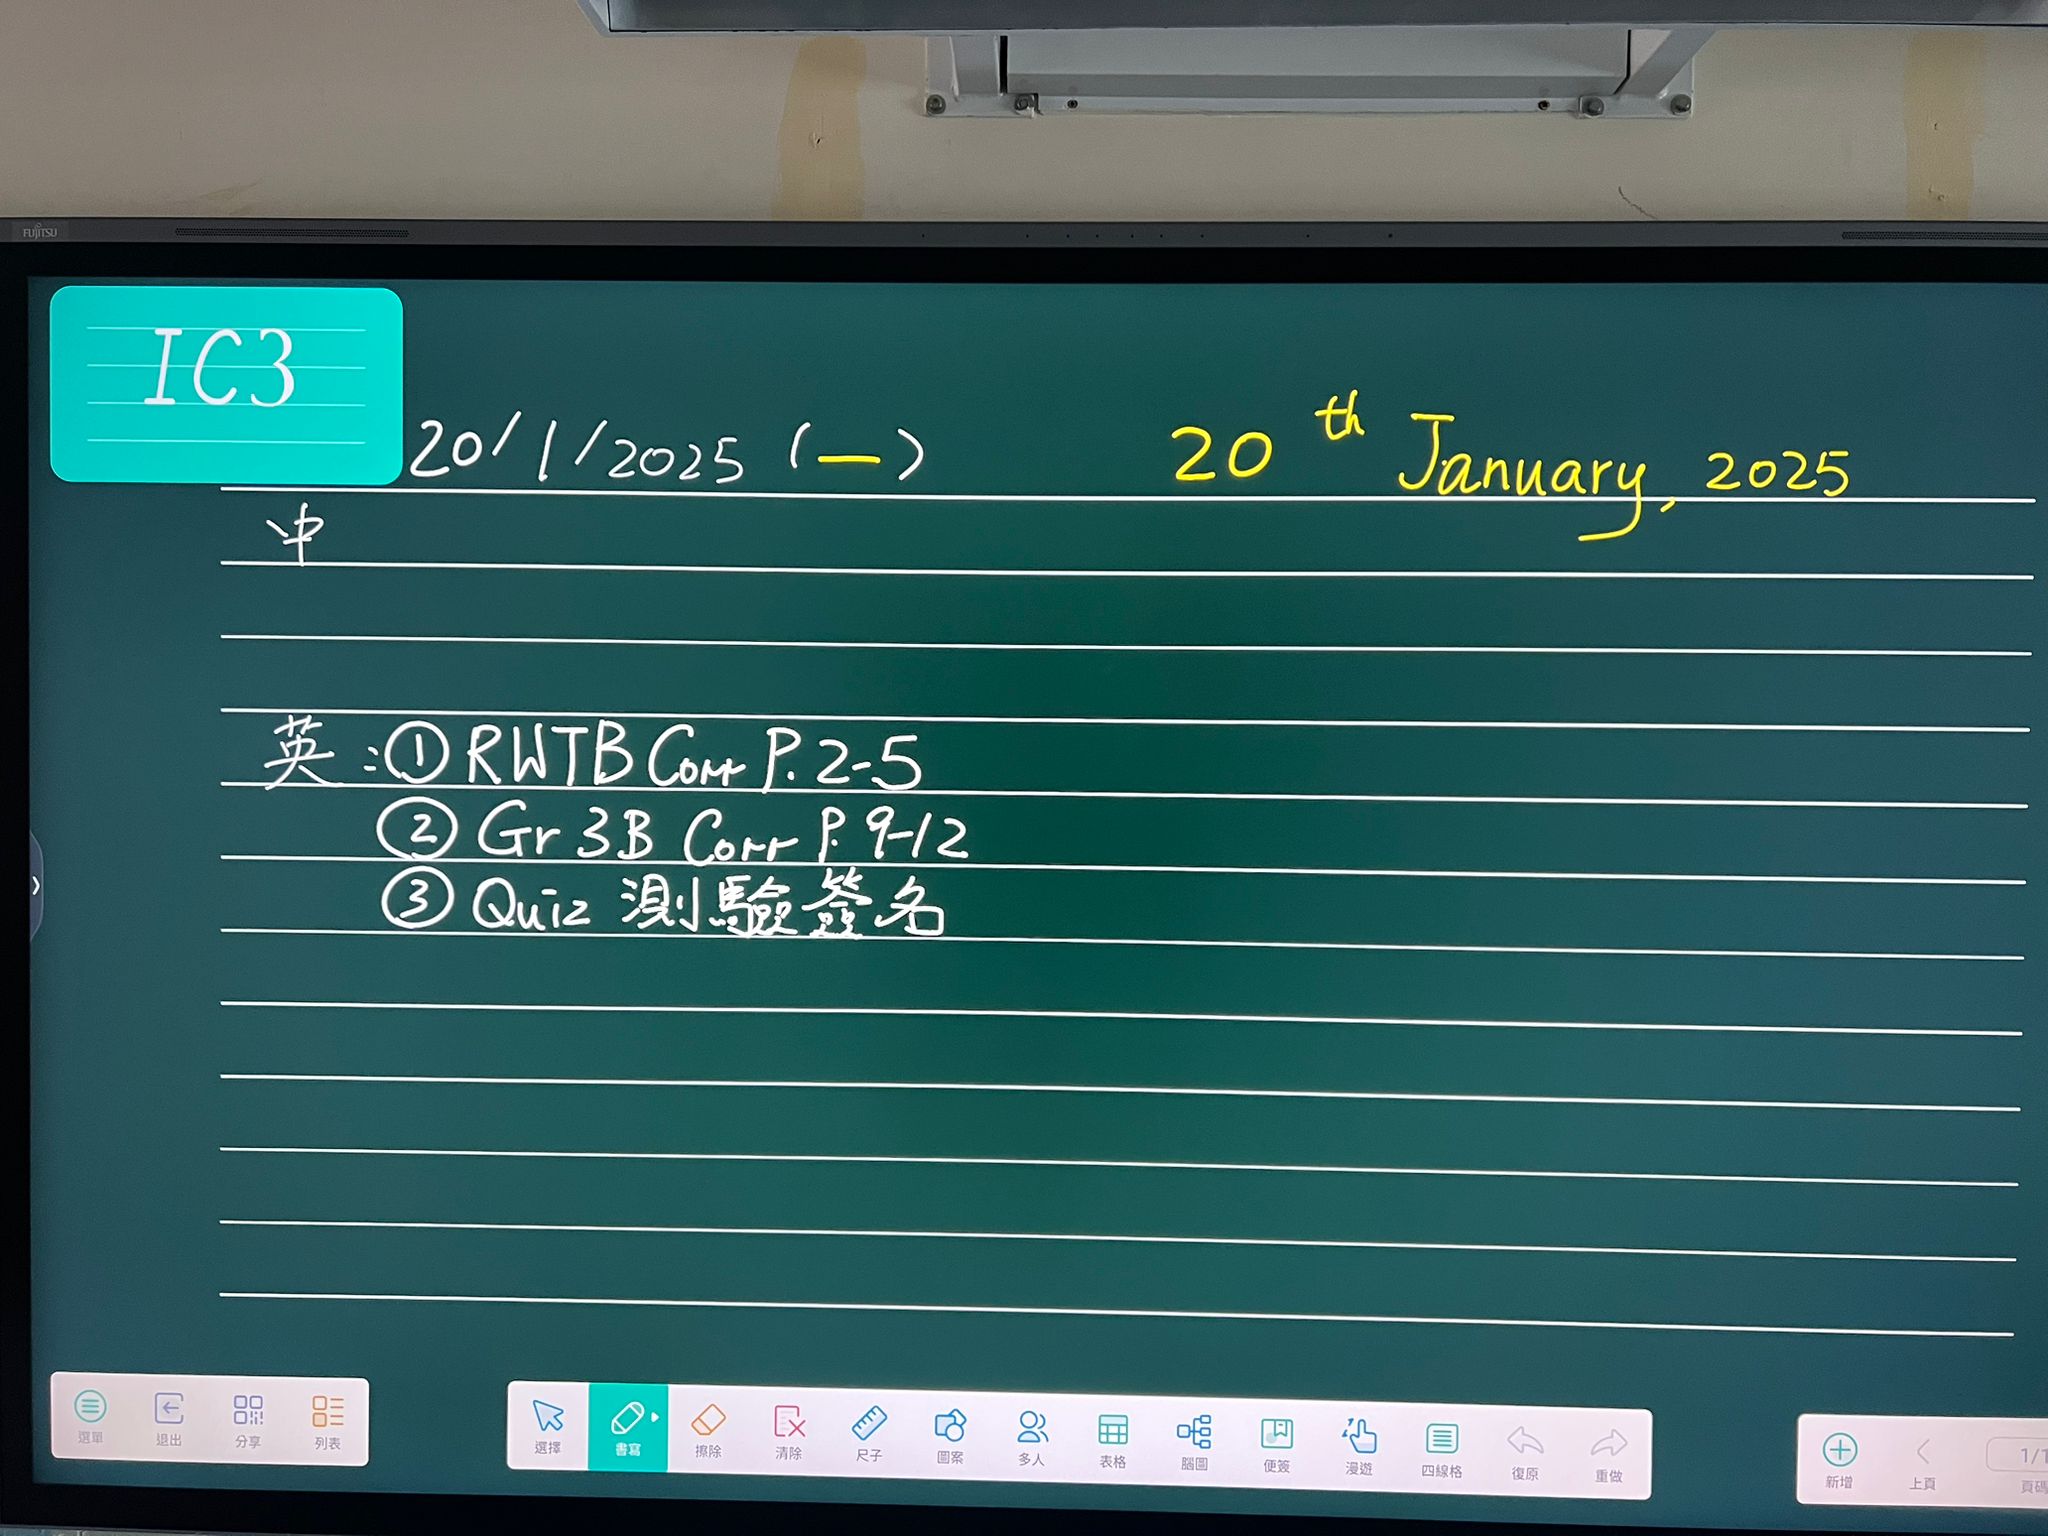 FUJITSU
IC3
20/1/2025 (一)
20th January, 2025
中
英:①RWTB Corr P.2-5
②Gr 3B Corr P.9-12
③Quiz 測驗簽名
選單 退出 分享 列表
選擇 書寫 擦除 清除 尺子 圖案 多人 表格 腦圖 便簽 漫遊 四線格 復原 重做
新增 上頁 1/1 頁碼